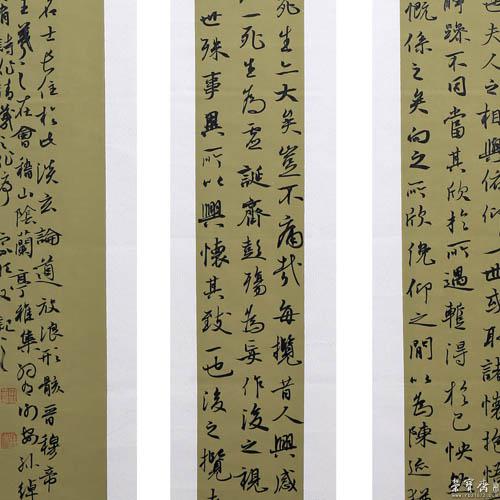 也夫人之相與俯仰一世或取諸懷抱
躁不同當其欣於所遇暫得於己快
慨係之矣向之所欣俛仰之間以為陳迹
死生亦大矣豈不痛哉每攬昔人興感
一死生為虛誕齊彭殤為妄作後之視
世殊事異所以興懷其致一也後之攬
名士長住於此談玄論道放浪形骸晉穆帝
王羲之在會稽山陰蘭亭雅集謝安孫綽
詩作請羲之作序記之